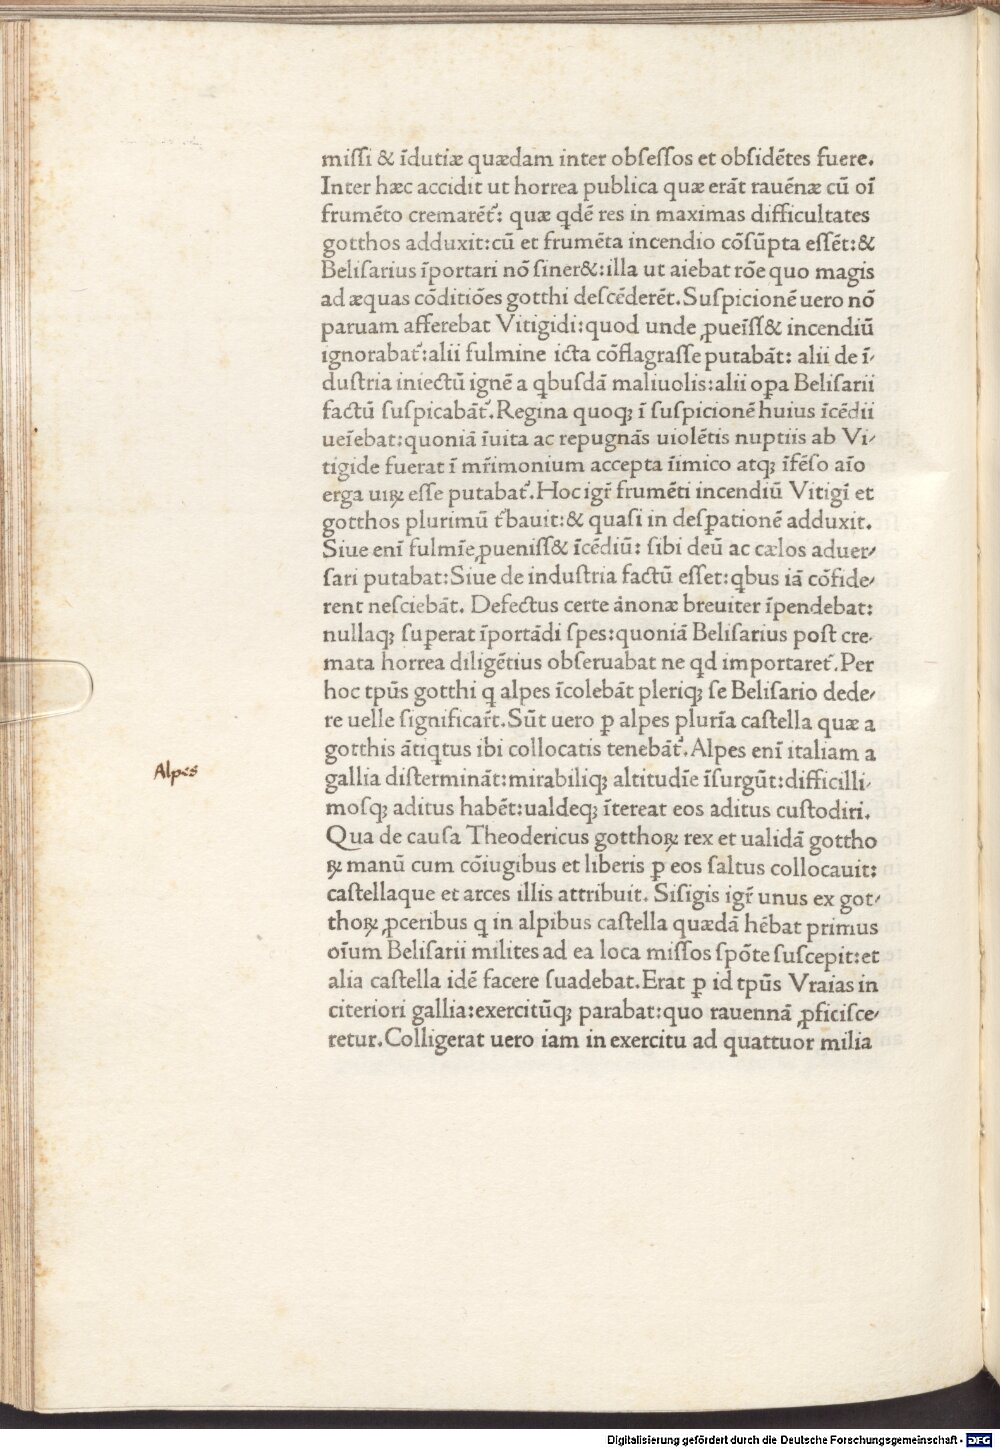 miſſi & ĩdutiæ quædam inter obſeſſos et obſidẽtes fuere.
Inter hæc accidit ut horrea publica quæ erãt rauẽnæ cũ oĩ
frumẽto cremarẽt᷑: quæ qdẽ res in maximas difficultates
gotthos adduxit:cũ et frumẽta incendio cõſũpta eſſẽt:&
Beliſarius ĩportari nõ ſiner&:illa ut aiebat rõe quo magis
ad æquas cõditiões gotthi deſcẽderẽt.Suſpicionẽ uero nõ
paruam afferebat Vitigidi:quod unde ꝓueĩſſ& incendiũ
ignorabat᷑:alii fulmine icta cõflagraſſe putabãt: alii de ĩ⸗
duſtria iniectũ ignẽ a qbuſdã maliuolis:alii oꝑa Beliſarii
factũ ſuſpicabãt᷑.Regina quoqꝫ ĩ ſuſpicionẽ huius ĩcẽdii
ueĩebat:quoniã ĩuita ac repugnãs uiolẽtis nuptiis ab Vi⸗
tigide fuerat ĩ mr̃imonium accepta ĩimico atqꝫ ĩfẽſo aĩo
erga uiꝝ eſſe putabat᷑.Hoc igr̃ frumẽti incendiũ Vitigĩ et
gotthos plurimũ t᷑bauit:& quaſi in deſꝑationẽ adduxit.
Siue enĩ fulmĩe ꝓueniſſ& ĩcẽdiũ: ſibi deũ ac cælos aduer⸗
ſari putabat:Siue de induſtria factũ eſſet:qbus iã cõfide⸗
rent neſciebãt. Defectus certe ãnonæ breuiter ĩpendebat:
nullaqꝫ ſuperat ĩportãdi ſpes:quoniã Beliſarius poſt cre⸗
mata horrea diligẽtius obſeruabat ne qd importaret᷑.Per
hoc tpũs gotthi q̃ alpes ĩcolebãt pleriqꝫ ſe Beliſario dede⸗
re uelle ſignificar̃t.Sũt uero ꝑ alpes plurĩa caſtella quæ a
gotthis ãtiqtus ibi collocatis tenebãt᷑.Alpes enĩ italiam a
gallia diſterminãt:mirabiliqꝫ altitudĩe ĩſurgũt:difficilli⸗
moſqꝫ aditus habẽt:ualdeqꝫ ĩtereat eos aditus cuſtodiri.
Alpes
Qua de cauſa Theodericus gotthoꝝ rex et ualidã gottho
ꝝ manũ cum cõiugibus et liberis ꝑ eos ſaltus collocauit:
caſtellaque et arces illis attribuit. Siſigis igr̃ unus ex got⸗
thoꝝ ꝓceribus q̃ in alpibus caſtella quædã hẽbat primus
oĩum Beliſarii milites ad ea loca miſſos ſpõte ſuſcepit:et
alia caſtella idẽ facere ſuadebat.Erat ꝑ id tpũs Vraias in
citeriori gallia:exercitũqꝫ parabat:quo rauennã ꝓficiſce⸗
retur.Colligerat uero iam in exercitu ad quattuor milia
Digitalisierung gefördert durch die Deutsche Forschungsgemeinschaft - DFG